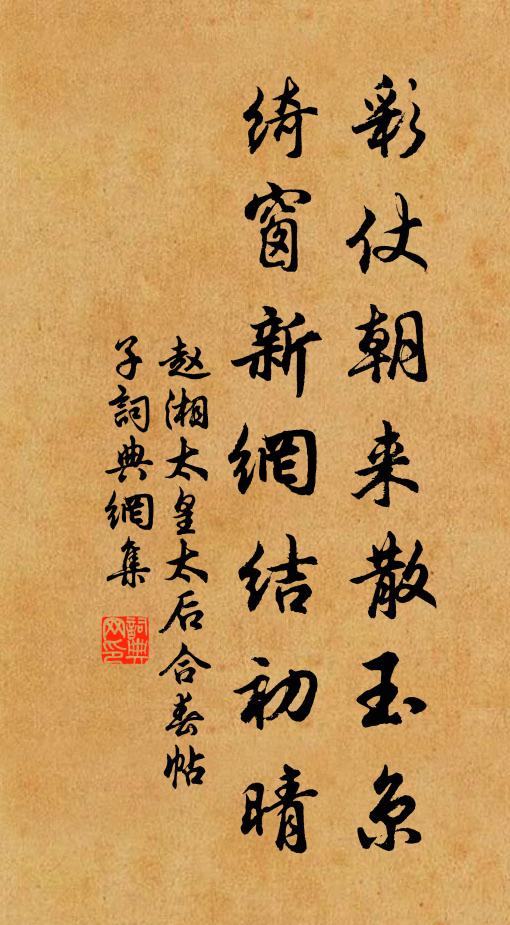 彩仗朝来散玉京
綺窗新網結初晴
赵湘太皇太后合春帖
子詞典網集
詞典網印